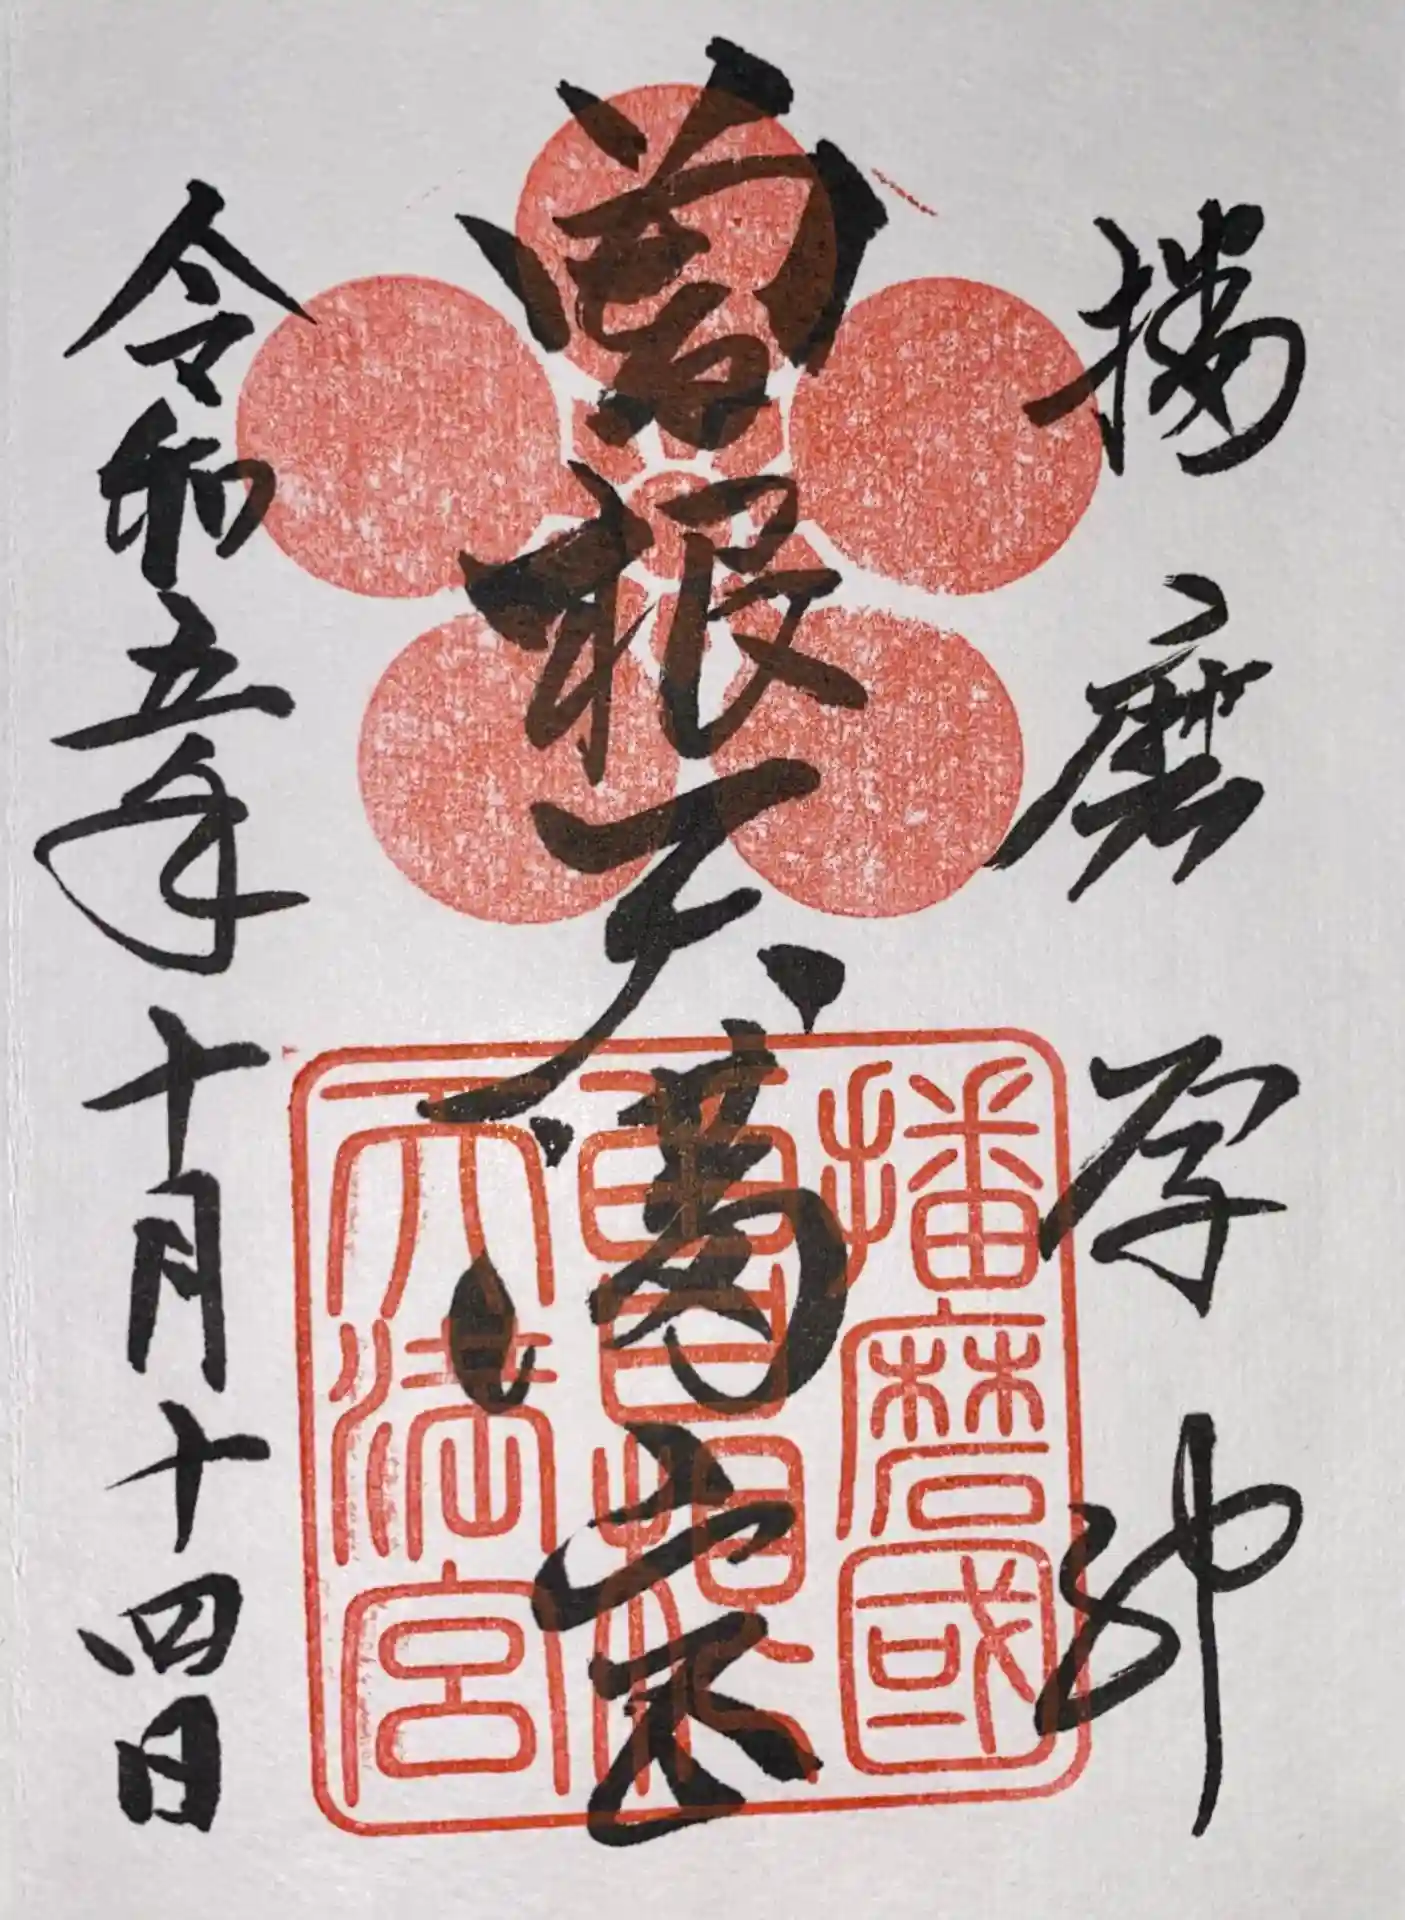 播磨学神
曽根天満宮
播磨國
曽根
天満宮
令和五年十月十四日